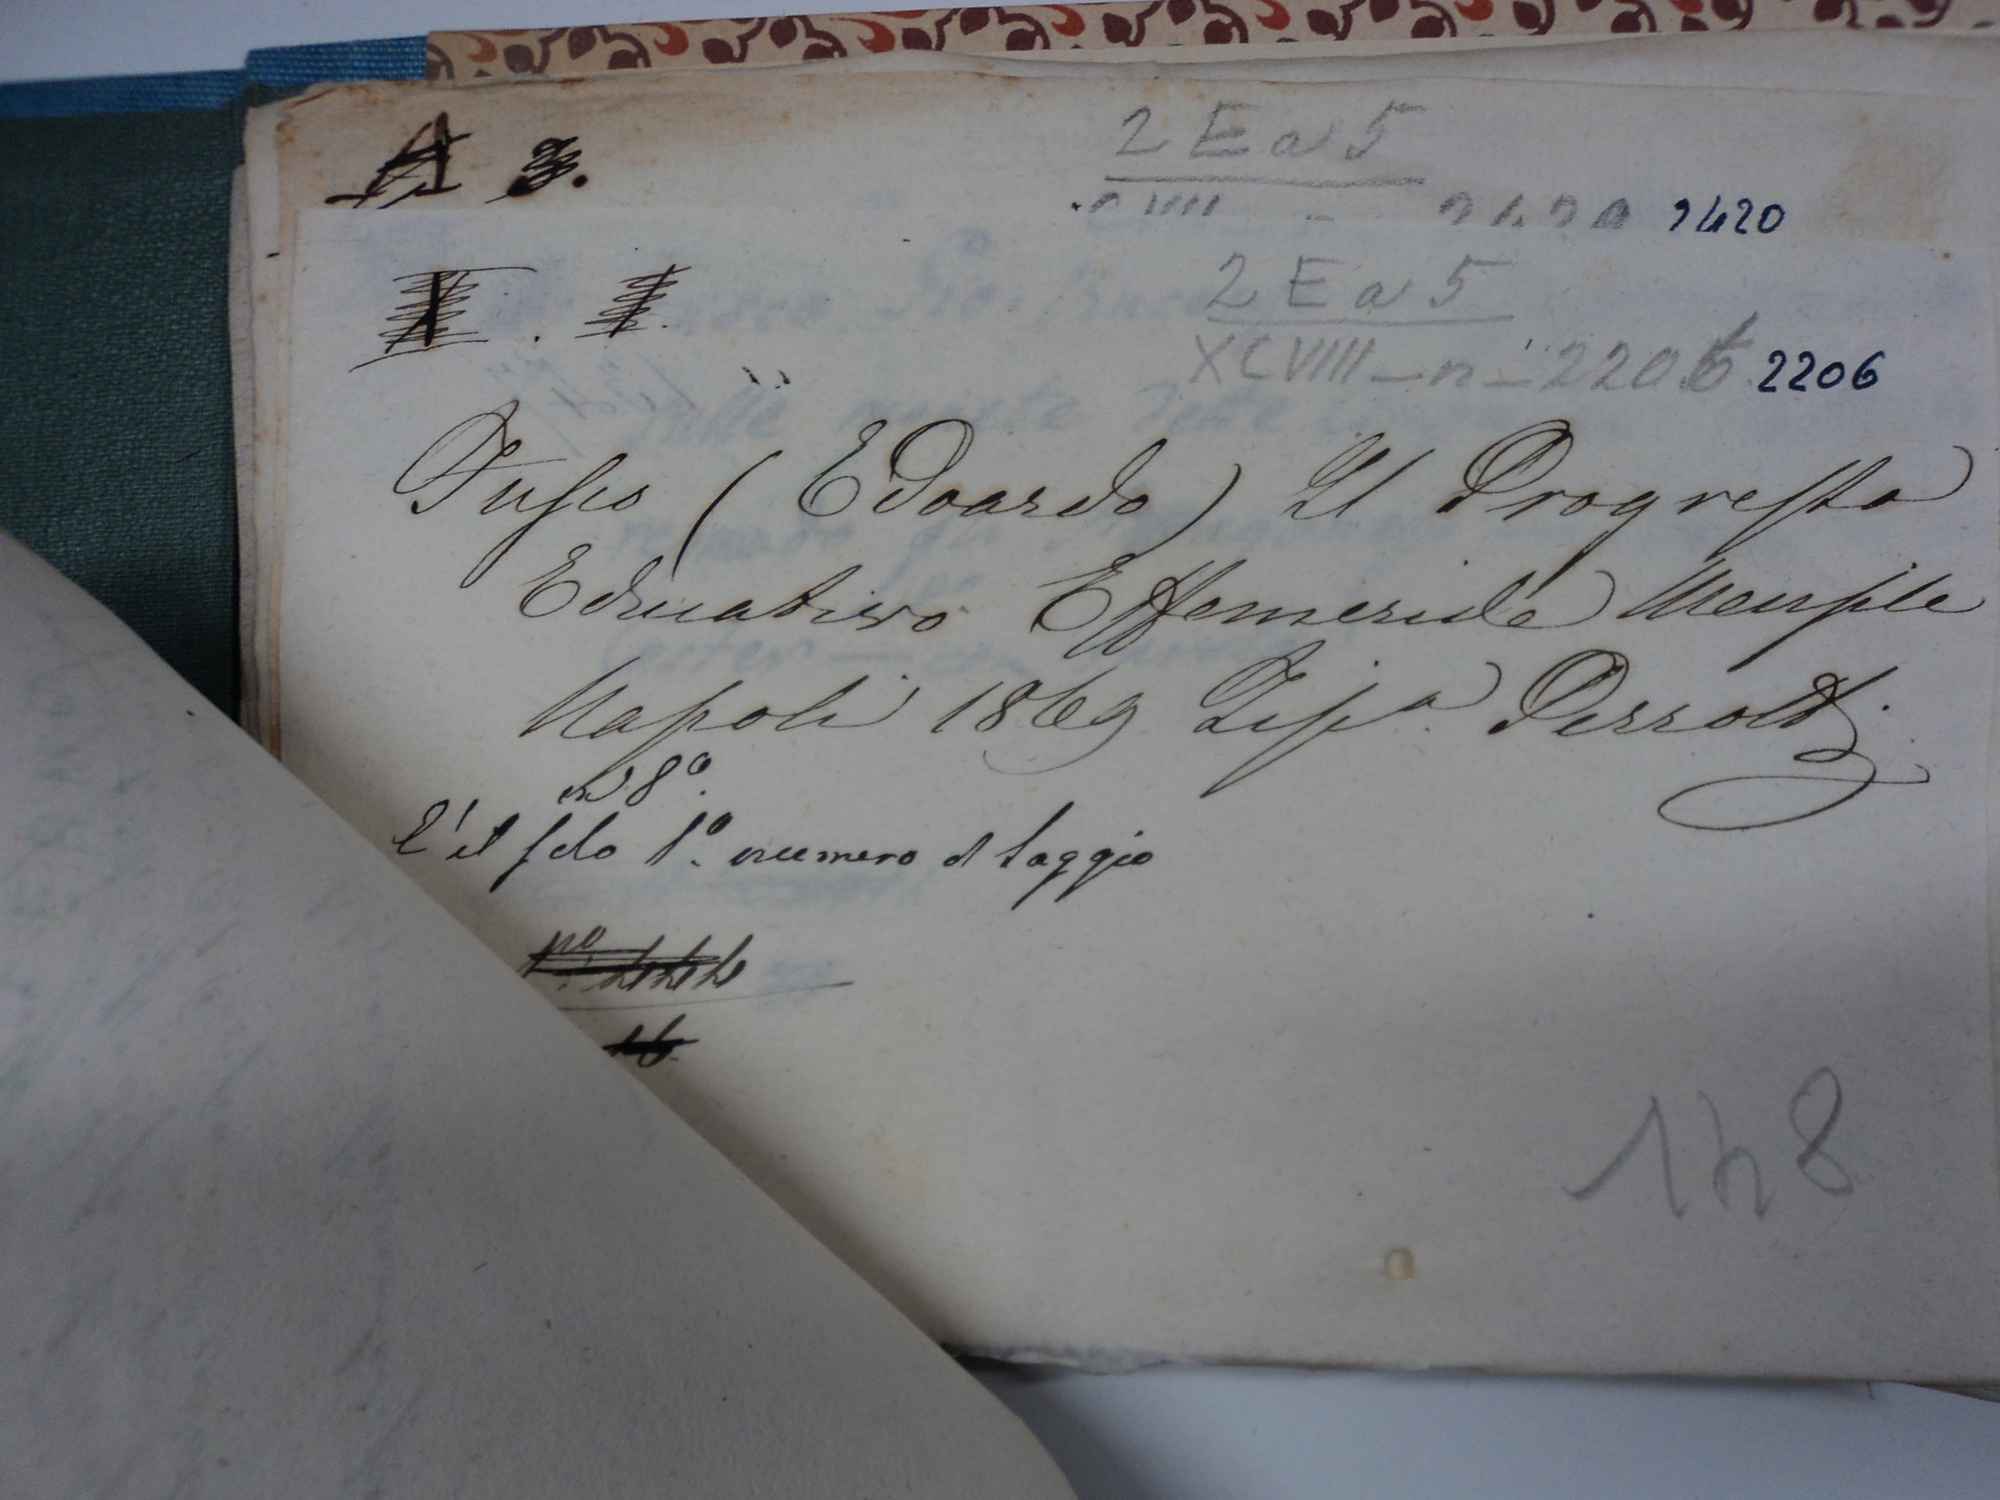 A 3.
2 E a 5
CVIII - 2420 2420
I. I.
2 E a 5
XCVIII - n - 2206 2206
Fusco (Edoardo) Il Progresso
Educativo Effemeride Mensile
Napoli 1869 Tipa. Perrotti
in 8°.
C'è il solo 1°. numero di saggio
n°.
16
148